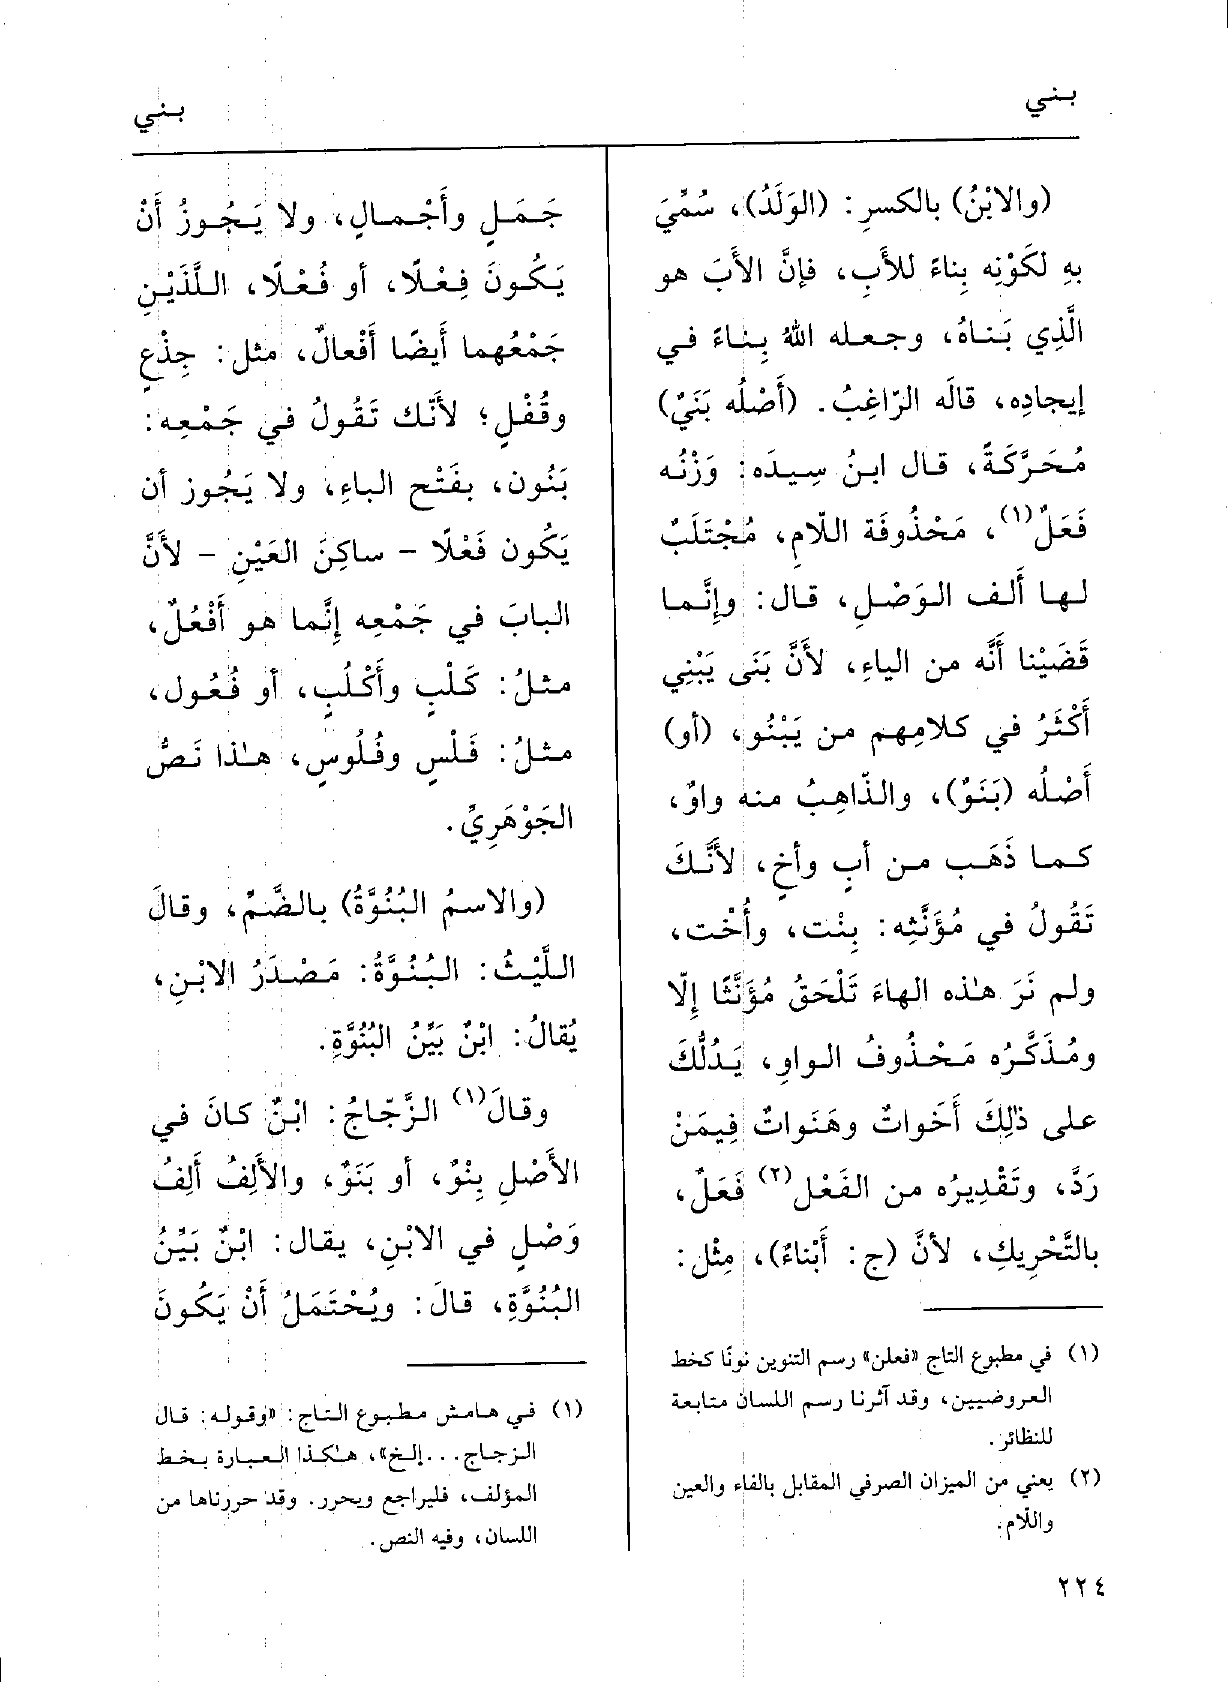 بني
بني
(والابْنُ) بالكسرِ: (الوَلَدُ)، سُمِّيَ
بهِ لكَوْنِه بِناءً للأَبِ، فإنَّ الأَبَ هو
الَّذِي بَناهُ، وجعله اللهُ بِناءً في
إيجادِه، قالَه الرّاغِبُ. (أَصْلُه بَنَيٌ)
مُحَرَّكَةً، قال ابنُ سِيدَه: وَزْنُه
فَعَلٌ(١)، مَحْذُوفَة اللّامِ، مُجْتَلَبٌ
لها أَلف الوَصْلِ، قال: وإنَّما
قَضَيْنا أَنَّه من الياءِ، لأَنَّ بَنَى يَبْنِي
أَكْثَرُ في كلامِهم من يَبْنُو، (أو)
أَصْلُه (بَنَوٌ)، والذّاهِبُ منه واوٌ،
كما ذَهَب من أبٍ وأخٍ، لأَنَّكَ
تَقُولُ في مُؤَنَّثِه: بِنْت، وأُخْت،
ولم نَرَ هٰذه الهاءَ تَلْحَقُ مُؤَنَّثًا إلّا
ومُذَكَّرُه مَحْذوفُ الواوِ، يَدُلُّكَ
على ذٰلِكَ أَخَواتٌ وهَنَواتٌ فِيمَنْ
رَدَّ، وتَقْدِيرُه من الفَعْل(٢) فَعَلٌ،
بالتَّحْرِيكِ، لأنَّ (ج: أَبْناءٌ)، مِثْل:
(١) في مطبوع التاج «فعلن» رسم التنوين نونًا كخط
العروضيين، وقد آثرنا رسم اللسان متابعة
للنظائر.
(٢) يعني من الميزان الصرفي المقابل بالفاء والعين
واللّام.
جَمَلٍ وأَجْمالٍ، ولا يَجُوزُ أَنْ
يَكُونَ فِعْلًا، أو فُعْلًا، اللَّذَيْنِ
جَمْعُهما أَيضًا أَفْعالٌ، مثل: جِذْعٍ
وقُفْلٍ؛ لأَنّك تَقُولُ في جَمْعِه:
بَنُون، بفَتْح الباءِ، ولا يَجُوز أن
يَكُون فَعْلًا - ساكِنَ العَيْنِ - لأَنَّ
البابَ في جَمْعِه إنَّما هو أَفْعُلٌ،
مثلُ: كَلْبٍ وأَكْلُبٍ، أو فُعُول،
مثلُ: فَلْسٍ وفُلُوسٍ، هٰذا نَصُّ
الجَوْهَرِيِّ.
(والاسمُ البُنُوَّةُ) بالضَّمِّ، وقالَ
اللَّيْثُ: البُنُوَّةُ: مَصْدَرُ الابْنِ،
يُقالُ: ابْنٌ بَيِّنُ البُنُوَّةِ.
وقالَ(١) الزَّجّاجُ: ابْنٌ كانَ في
الأَصْلِ بِنْوٌ، أو بَنَوٌ، والأَلِفُ أَلِفُ
وَصْلٍ في الابْنِ، يقال: ابْنٌ بَيِّنُ
البُنُوَّةِ، قالَ: ويُحْتَمَلُ أَنْ يَكُونَ
(١) في هامش مطبوع التاج: «وقوله: قال
الزجاج... إلخ»، هٰكذا العبارة بخط
المؤلف، فليراجع ويحرر. وقد حررناها من
اللسان، وفيه النص.
٢٢٤